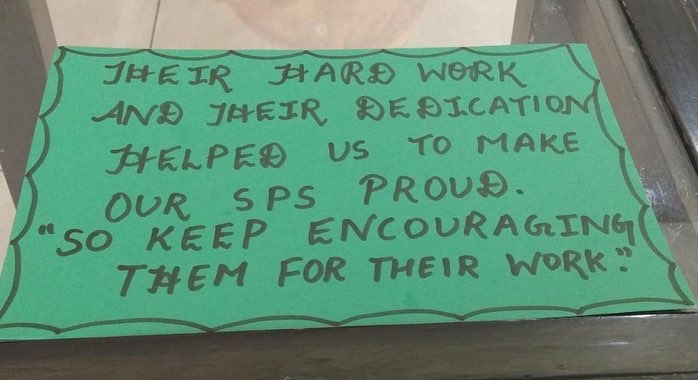 THEIR HARD WORK
AND THEIR DEDICATION
HELPED US TO MAKE
OUR SPS PROUD.
"SO KEEP ENCOURAGING
THEM FOR THEIR WORK."